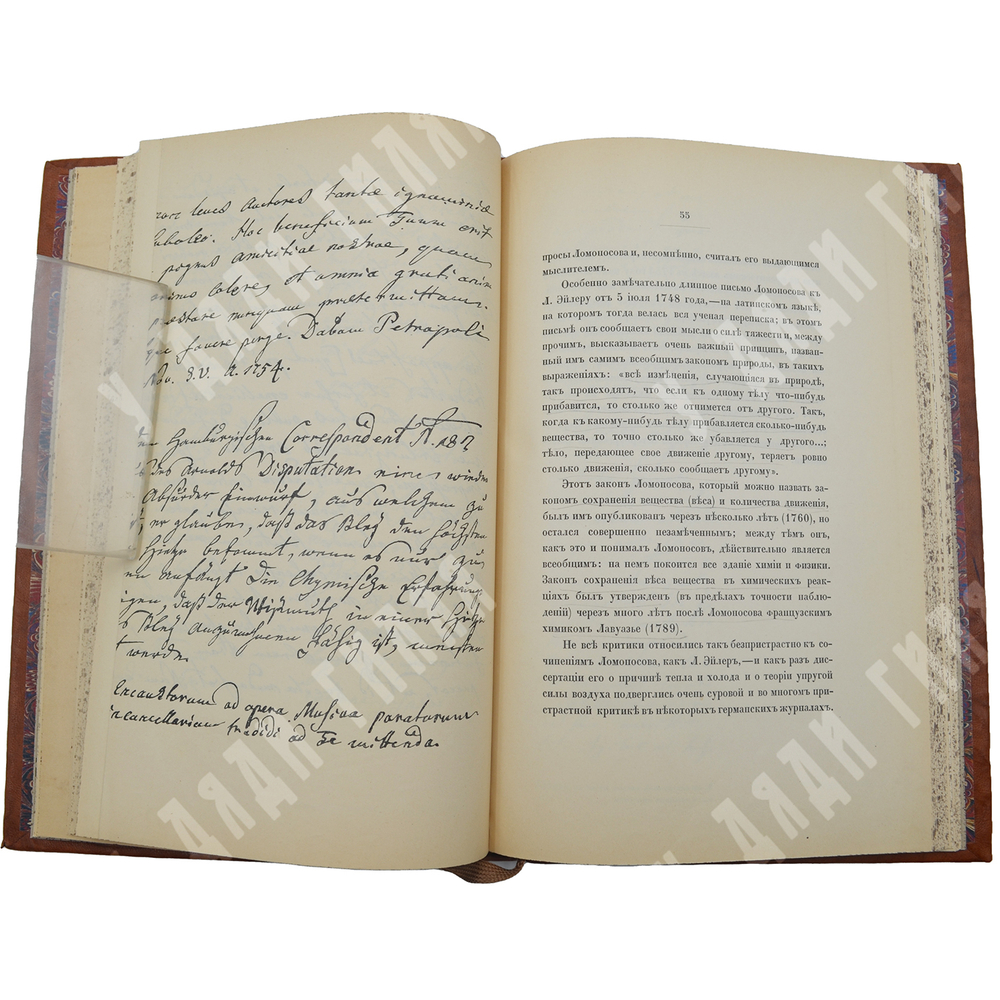 leves auctores tantae ignominiae
Hoc beneficium Tuum erit
pognus amicitiae nostrae, quam
colere, et omnia grati animi
praestare nunquam praetermittam.
favere perge. Dabam Petropoli
Nov. S.V. A. 1754.
Hamburgischen Correspondent N. 187
des Arnolds Disputation eine wieder
Absurder Einwurf, aus welchem zu
er glaube, daß das Bley den höchsten
bekommt, wenn es nur zu
en anfängt die Chymische Erfahrung
igen, daß der Wißmuth in einer
Bley anzunehmen fähig ist, meisten
werde
Encaustorum ad opera Musiva paratorum
cancellariam tradidi ad Te mittenda.
55
просы Ломоносова и, несомнѣнно, считалъ его выдающимся
мыслителемъ.
Особенно замѣчательно длинное письмо Ломоносова къ
Л. Эйлеру отъ 5 іюля 1748 года,—на латинскомъ языкѣ,
на которомъ тогда велась вся ученая переписка; въ этомъ
письмѣ онъ сообщаетъ свои мысли о силѣ тяжести и, между
прочимъ, высказываетъ очень важный принципъ, назван-
ный имъ самимъ всеобщимъ закономъ природы, въ такихъ
выраженіяхъ: «всѣ измѣненія, случающіяся въ природѣ,
такъ происходятъ, что если къ одному тѣлу что-нибудь
прибавится, то столько же отнимется отъ другого. Такъ,
когда къ какому-нибудь тѣлу прибавляется сколько-нибудь
вещества, то точно столько же убавляется у другого...;
тѣло, передающее свое движеніе другому, теряетъ ровно
столько движенія, сколько сообщаетъ другому».
Этотъ законъ Ломоносова, который можно назвать за-
кономъ сохраненія вещества (вѣса) и количества движенія,
былъ имъ опубликованъ черезъ нѣсколько лѣтъ (1760), но
остался совершенно незамѣченнымъ; между тѣмъ онъ,
какъ это и понималъ Ломоносовъ, дѣйствительно является
всеобщимъ: на немъ покоится все зданіе химіи и физики.
Законъ сохраненія вѣса вещества въ химическихъ реак-
ціяхъ былъ утвержденъ (въ предѣлахъ точности наблю-
деній) черезъ много лѣтъ послѣ Ломоносова французскимъ
химикомъ Лавуазье (1789).
Не всѣ критики относились такъ безпристрастно къ со-
чиненіямъ Ломоносова, какъ Л. Эйлеръ,—и какъ разъ дис-
сертаціи его о причинѣ тепла и холода и о теоріи упругой
силы воздуха подверглись очень суровой и во многомъ при-
страстной критикѣ въ нѣкоторыхъ германскихъ журналахъ.